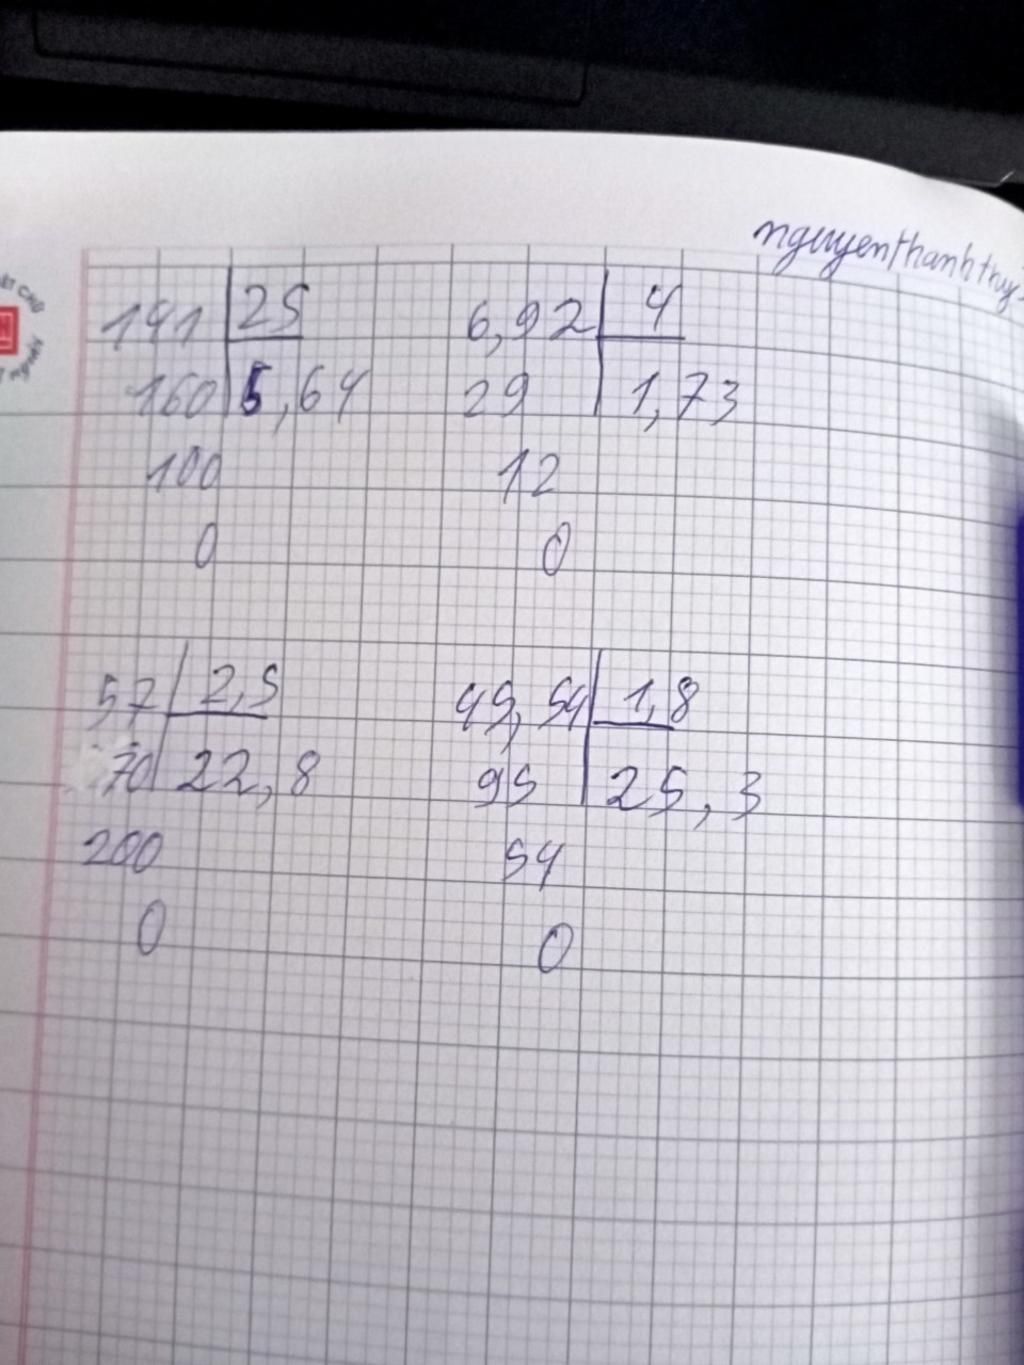 nguyenthanhthuy
141 25 6,92 4
160 5,64 29 1,73
100 12
0 0
57 2,5 45,54 1,8
70 22,8 95 25,3
200 54
0 0